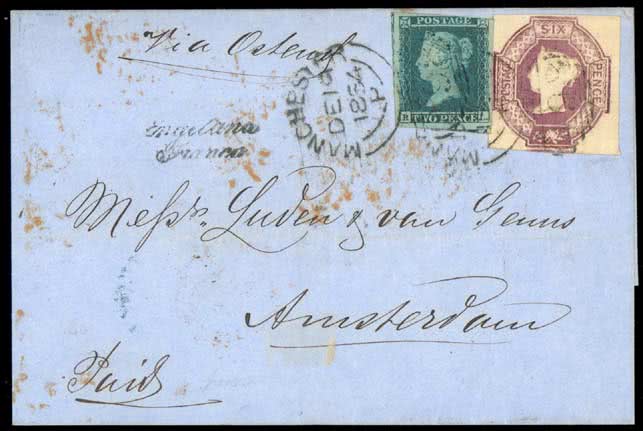 Via Ostend
POSTAGE
R TWO PENCE I
SIX
PENCE
MANCHESTER
DE 19
1854
P
Franca
Messrs. Luden & van Geuns
Amsterdam
Paid